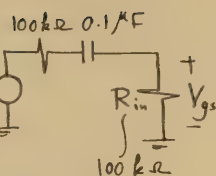 100kΩ 0.1μF
+
Rin Vgs
-
100 kΩ